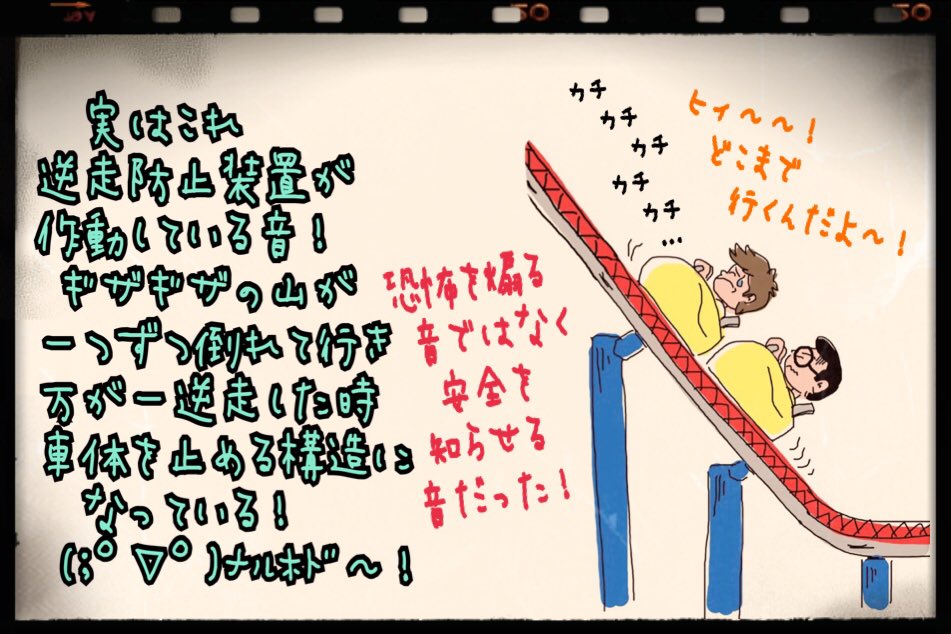 実はこれ
逆走防止装置が
作動している音！
ギザギザの山が
一つずつ倒れて行き
万が一逆走した時
車体を止める構造に
なっている！
(;ﾟ▽ﾟ)ﾒﾙﾎﾄﾞ〜！
恐怖を煽る
音ではなく
安全を
知らせる
音だった！
カチ
カチ
カチ
カチ
カチ
…
ヒィ〜〜！
どこまで
行くんだよ〜！
20
20